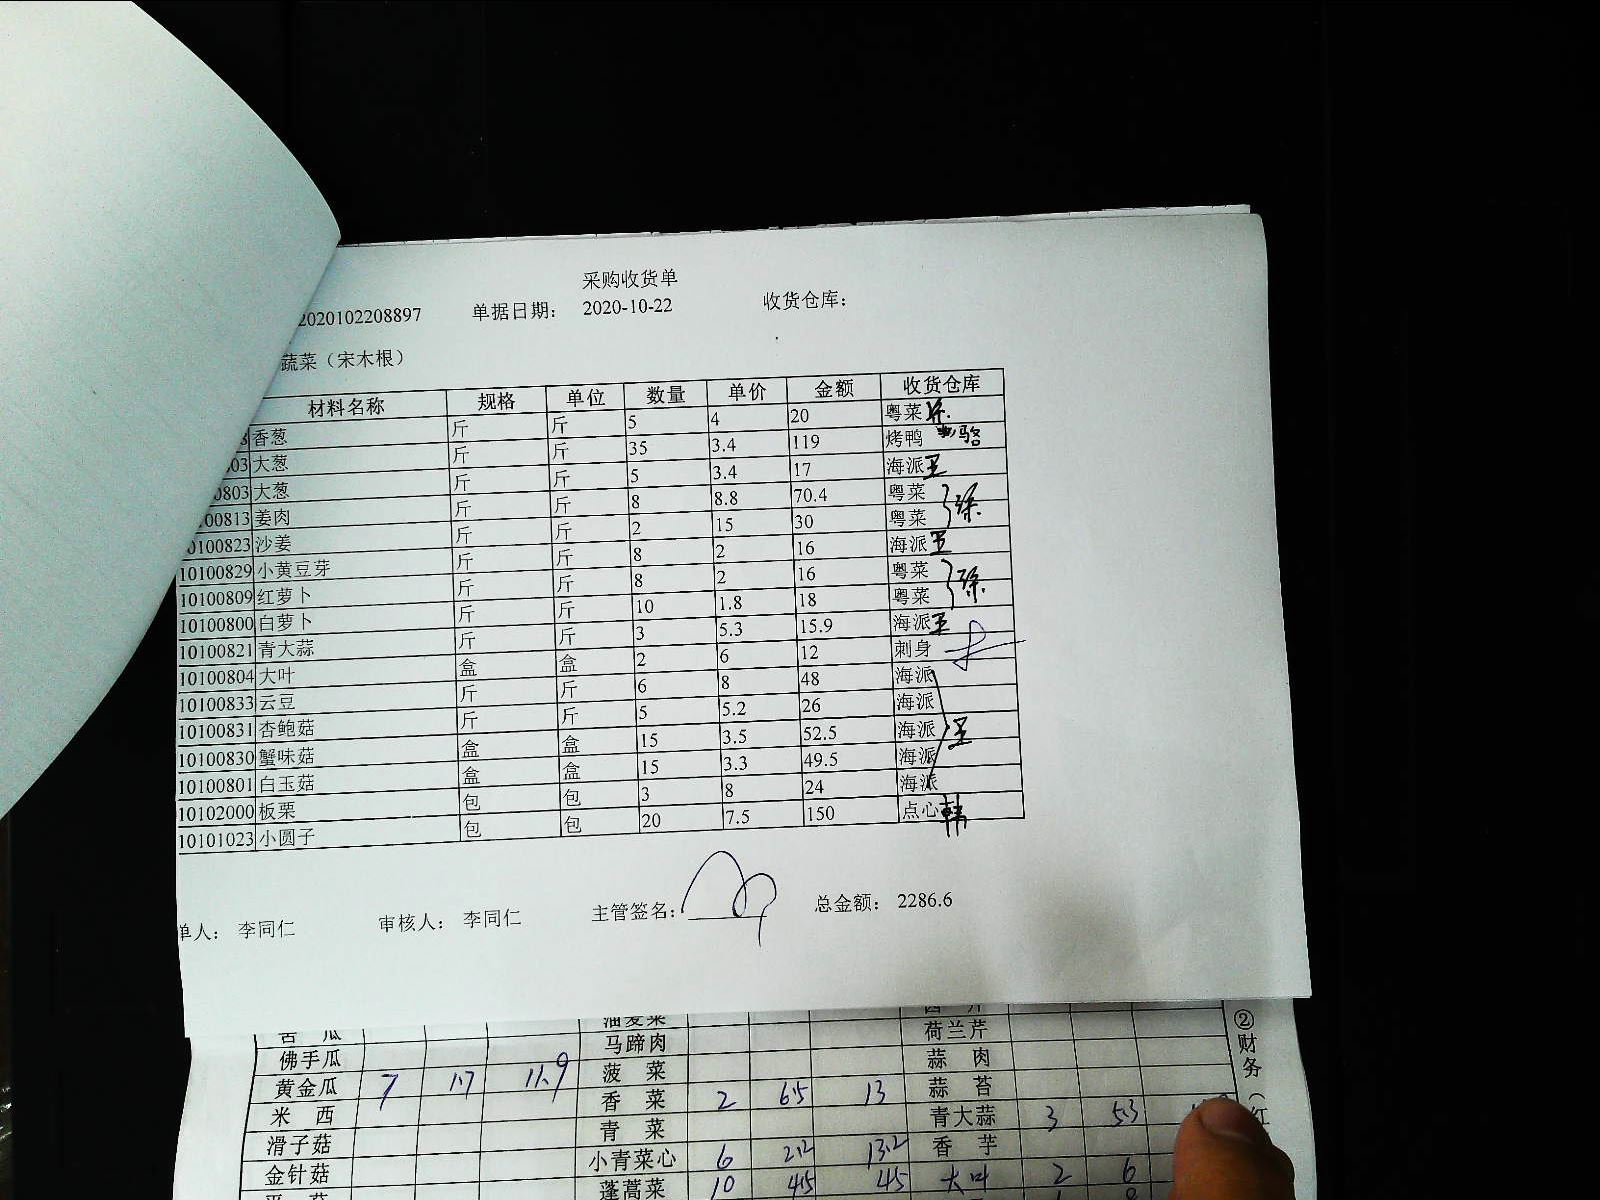 采购收货单
2020102208897 单据日期： 2020-10-22 收货仓库：
蔬菜（宋木根）
材料名称 规格 单位 数量 单价 金额 收货仓库
3 香葱 斤 斤 5 4 20 粤菜
03 大葱 斤 斤 35 3.4 119 烤鸭 骆
0803 大葱 斤 斤 5 3.4 17 海派 王
00813 姜肉 斤 斤 8 8.8 70.4 粤菜
0100823 沙姜 斤 斤 2 15 30 粤菜
10100829 小黄豆芽 斤 斤 8 2 16 海派 王
10100809 红萝卜 斤 斤 8 2 16 粤菜
10100800 白萝卜 斤 斤 10 1.8 18 粤菜
10100821 青大蒜 斤 斤 3 5.3 15.9 海派 王
10100804 大叶 盒 盒 2 6 12 刺身
10100833 云豆 斤 斤 6 8 48 海派
10100831 杏鲍菇 斤 斤 5 5.2 26 海派
10100830 蟹味菇 盒 盒 15 3.5 52.5 海派 王
10100801 白玉菇 盒 盒 15 3.3 49.5 海派
10102000 板栗 包 包 3 8 24 海派
10101023 小圆子 包 包 20 7.5 150 点心 韩
单人： 李同仁 审核人： 李同仁 主管签名： 总金额： 2286.6
苦 瓜 油麦菜 西 芹
佛手瓜 马蹄肉 荷兰芹
黄金瓜 7 1.7 11.9 菠 菜 蒜 肉
米 西 香 菜 2 6.5 13 蒜 苔
滑子菇 青 菜 青大蒜 3 5.3
金针菇 小青菜心 6 2.2 13.2 香 芋
蓬蒿菜 10 4.5 45 大叶 2 6
②财务（红